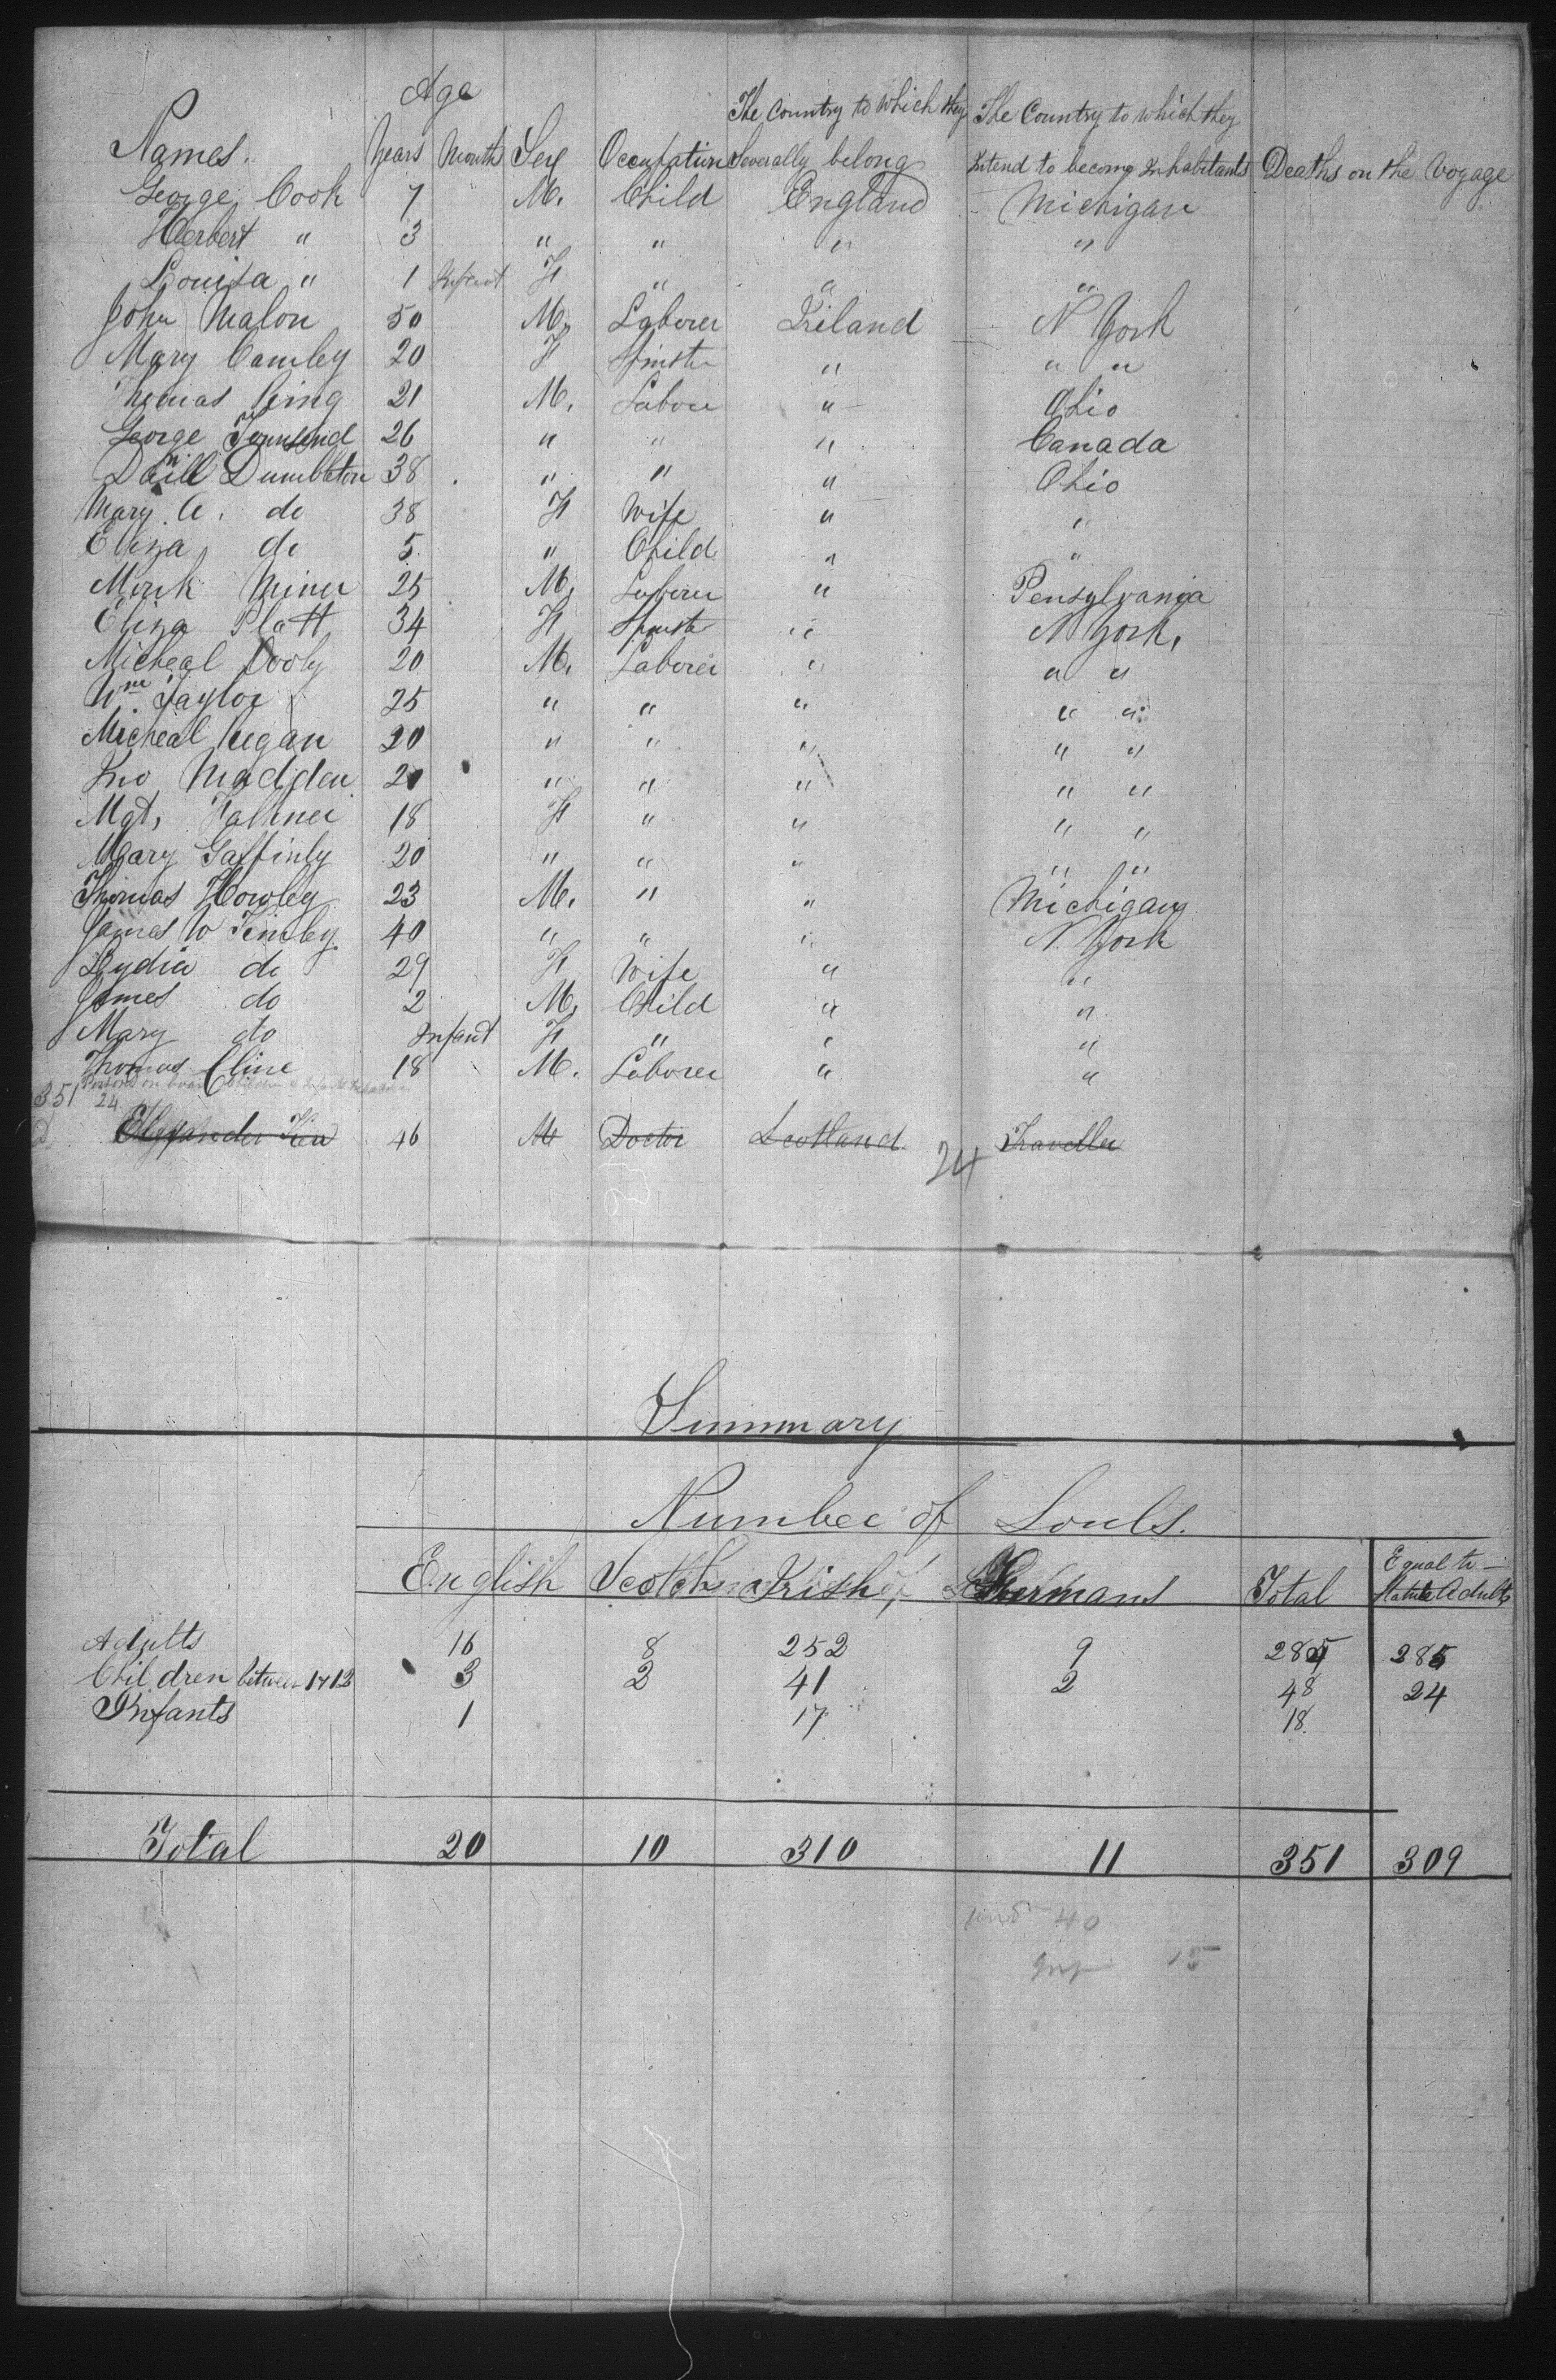 Age
The Country to which they The Country to which they
Names. Years Months Sex Occupation Severally belong Intend to become Inhabitants Deaths on the Voyage
George Cook 7 M. Child England Michigan
Herbert " 3 " " " "
Louisa " 1 Infant F " " "
John Malon 50 M. Laborer Ireland N York
Mary Camley 20 F Spinster " " "
Thomas King 21 M. Laborer " Ohio
George Townsend 26 " " " Canada
Danll Dumbleton 38 " " " Ohio
Mary A. do 38 F Wife " "
Eliza do 5 " Child " "
Miner 25 M. Laborer " Pensylvania
Eliza Platt 34 F Spinster " N York,
Micheal Dooly 20 M. Laborer " " "
Wm Taylor 25 " " " " "
Micheal 20 " " " " "
Jno Madden 20 " " " " "
Mgt, 18 F " " " "
Mary Gaffinly 20 " " " " "
Thomas Howley 23 M. " " Michigan
James W 40 " " " N. York
Lydia do 29 F Wife " "
James do 2 M. Child " "
Mary do Infant F " " "
Thomas Cline 18 M. Laborer " "
351
24
46 M Doctor Scotland Traveller
24
Summary
Number of Souls.
English Scotch Irish Germans Total Equal to Statute Adults
Adults 16 8 252 9 285 285
Children between 1 & 12 3 2 41 2 48 24
Infants 1 17 18
Total 20 10 310 11 351 309
40
15